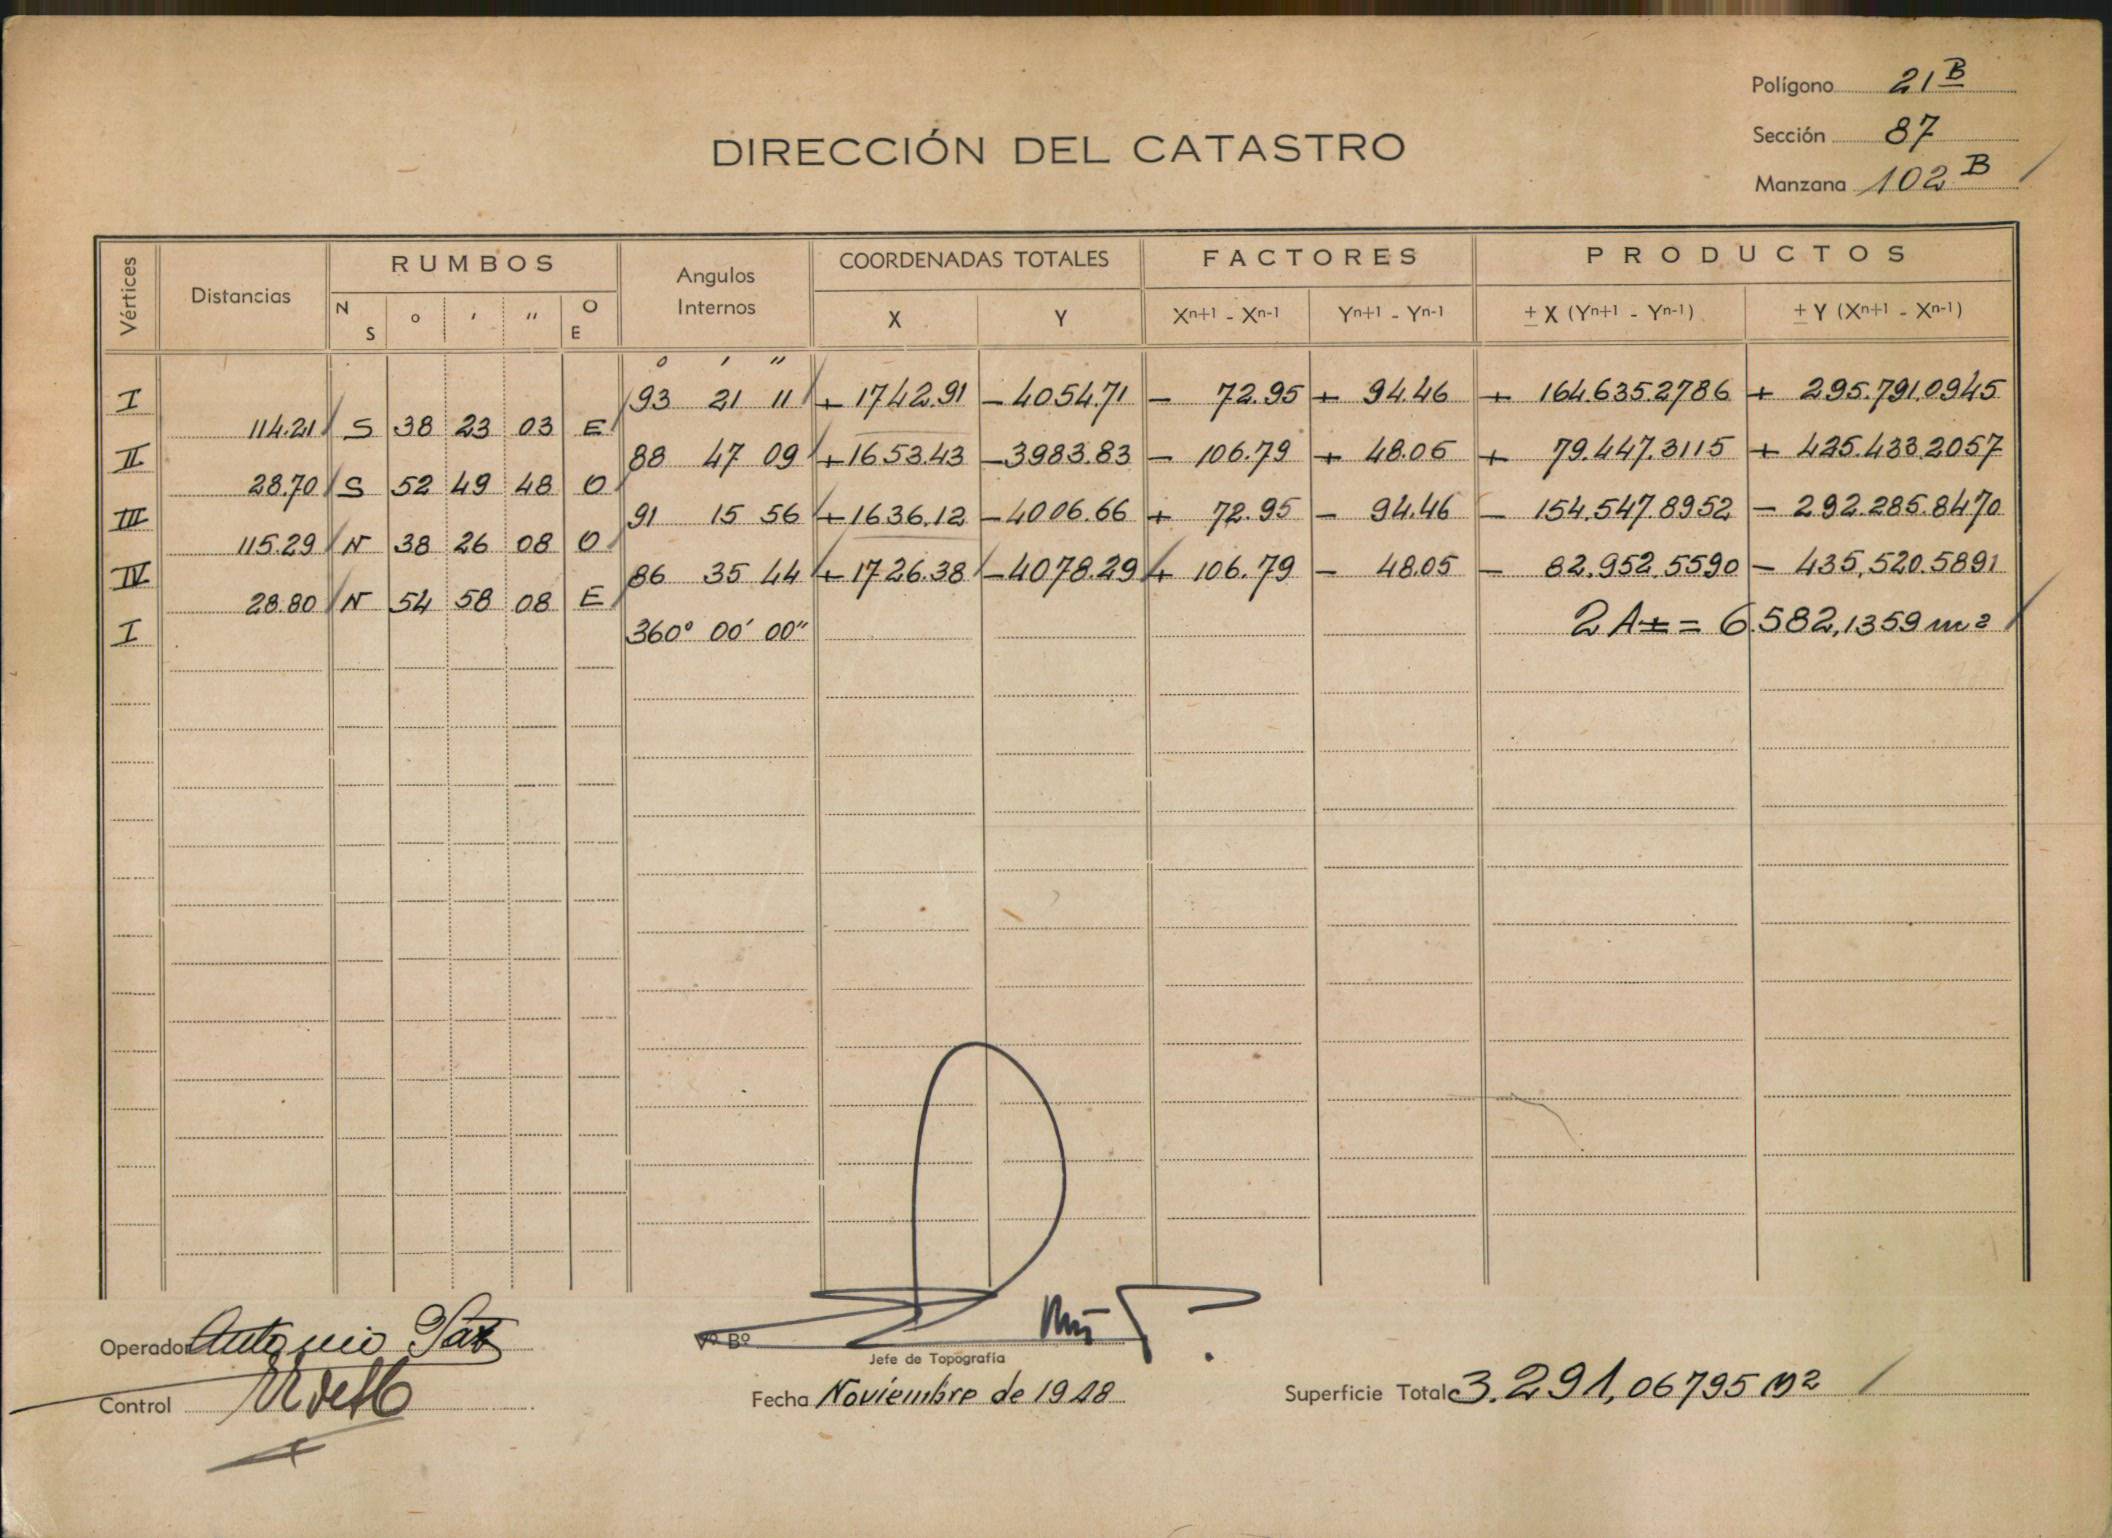 Polígono 21B
Sección 87
Manzana 102B
DIRECCIÓN DEL CATASTRO
Vértices Distancias RUMBOS Angulos Internos COORDENADAS TOTALES FACTORES PRODUCTOS
N S ° ' " O E X Y Xn+1 - Xn-1 Yn+1 - Yn-1 ± X (Yn+1 - Yn-1) ± Y (Xn+1 - Xn-1)
° ' "
I 93 21 11 + 1742.91 - 4054.71 - 72.95 + 94.46 + 164.635.2786 + 295.791.0945
114.21 S 38 23 03 E
II 88 47 09 + 1653.43 - 3983.83 - 106.79 + 48.05 + 79.447.3115 + 425.433.2057
28.70 S 52 49 48 O
III 91 15 56 + 1636.12 - 4006.66 + 72.95 - 94.46 - 154.547.8952 - 292.285.8470
115.29 N 38 26 08 O
IV 86 35 44 + 1726.38 - 4078.29 + 106.79 - 48.05 - 82.952.5590 - 435,520.5891
28.80 N 54 58 08 E
I 360° 00' 00" 2 A± = 6.582,1359 m2
Operador Antonio
Vº Bº
Jefe de Topografía
Control
Fecha Noviembre de 1948
Superficie Total 3.291,06795 m2